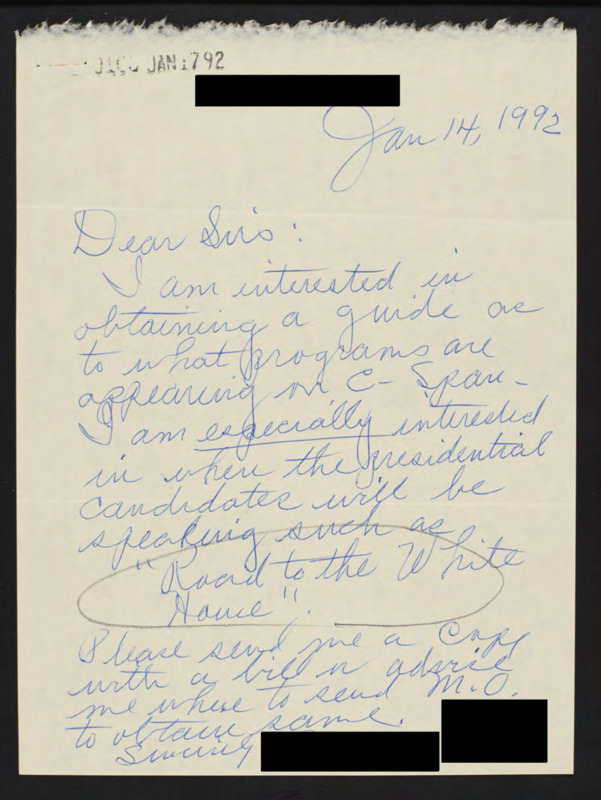 JAN 17 92
Jan 14, 1992
Dear Sirs:
I am interested in
obtaining a guide as
to what programs are
appearing on C-Span-
I am especially interested
in when the presidential
candidates will be
speaking such as
"Road to the White
House".
Please send me a Copy
with a bill or advise
me where to send M.O.
to obtain same.